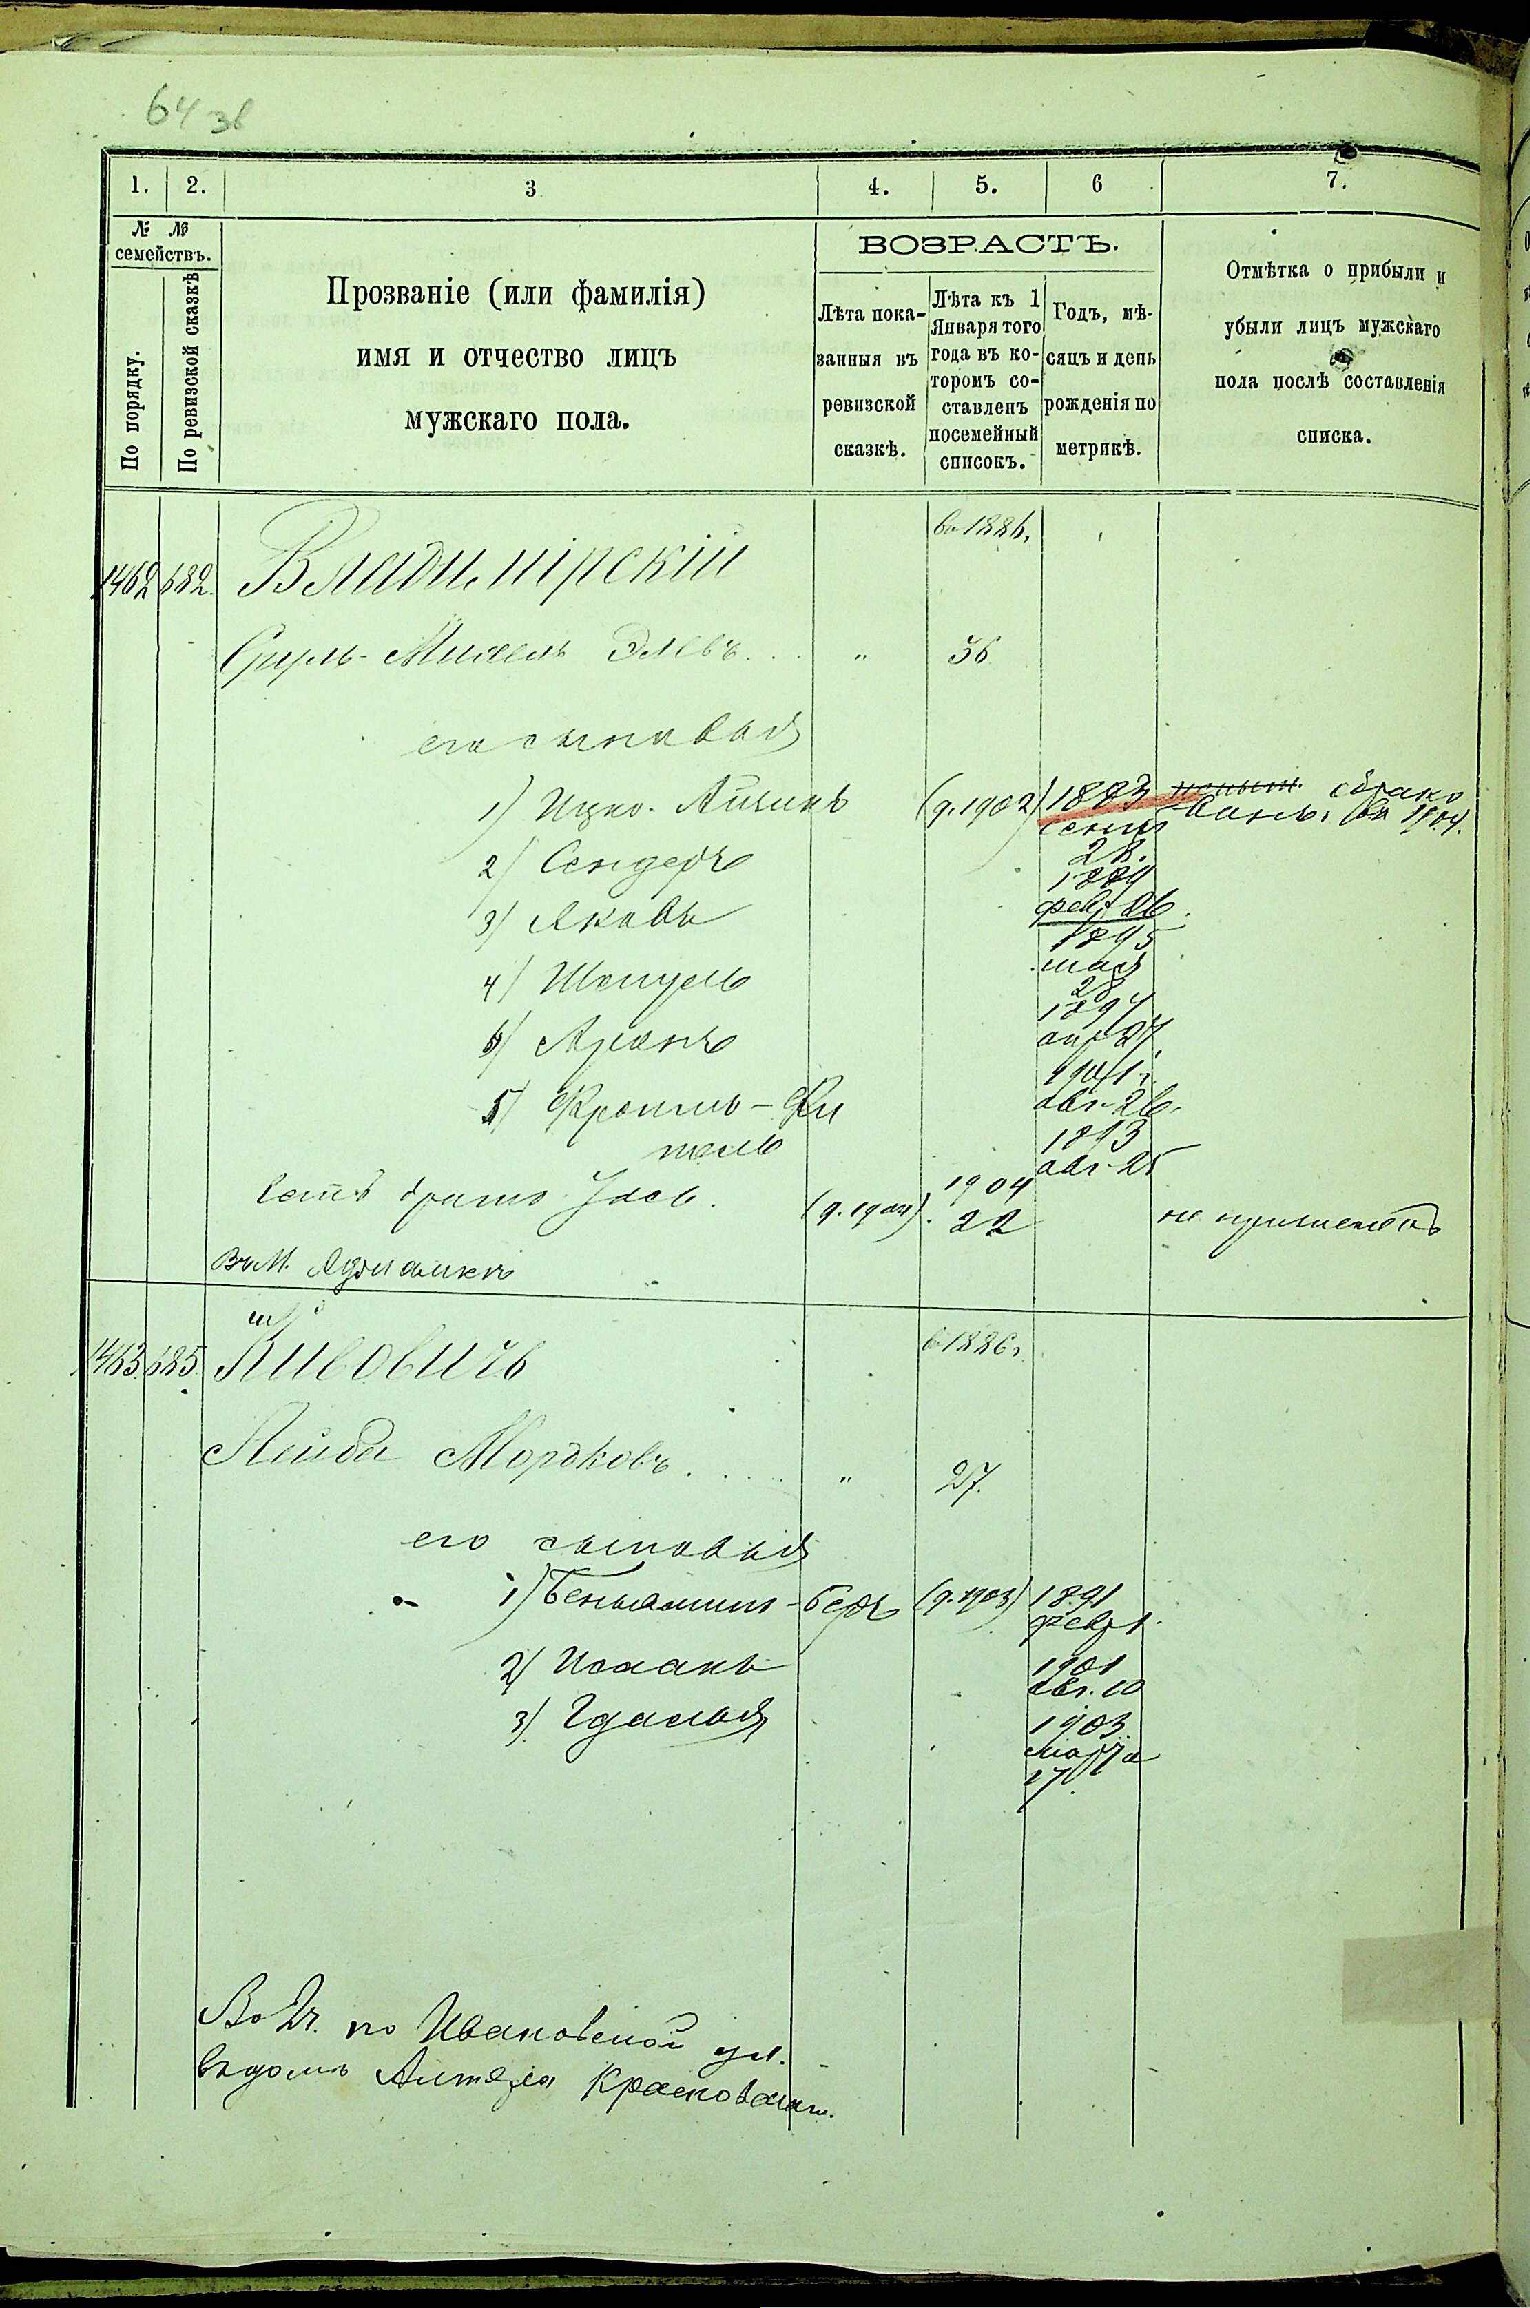 64 зв
1. 2. 3 4. 5. 6 7.
№ №
семействъ.
По порядку.
По ревизской сказкѣ
Прозваніе (или фамилія)
имя и отчество лицъ
мужскаго пола.
ВОЗРАСТЪ.
Лѣта пока-
занныя въ
ревизской
сказкѣ.
Лѣта къ 1
Января того
года въ ко-
торомъ со-
ставленъ
посемейный
списокъ.
Годъ, мѣ-
сяцъ и день
рожденія по
метрикѣ.
Отмѣтка о прибыли и
убыли лицъ мужскаго
пола послѣ составленія
списка.
въ 1886.
1462 682. Владимірскій
Сруль-Михель Элевъ... " 36
его сыновья
1) Ицко-Айзикъ (д. 1902) 1883 обрако
сент ванъ. въ 1904.
28.
2) Сендеръ 1889
фев. 26
3) Яковъ 1895
мая
28
4) Шмуль 1897
апр 27.
6) Аронъ 1904 г.
авг. 26.
5) Фроимъ-Фи
тель
1893
авг. 25
братъ (д. 1904). 1904
22
не приметъ
Въ М.
1463. 685. Кивовичъ
в 1886 г.
Лейба Мордковъ..... " 27.
его сыновья
1) Беньяминъ-Беръ (д. 1903) 1891
февр 1.
2) Исаакъ 1901
авг. 10
3) Гдалья 1903
марта
17
по Ивановской ул.
въ домѣ Красковскаго.